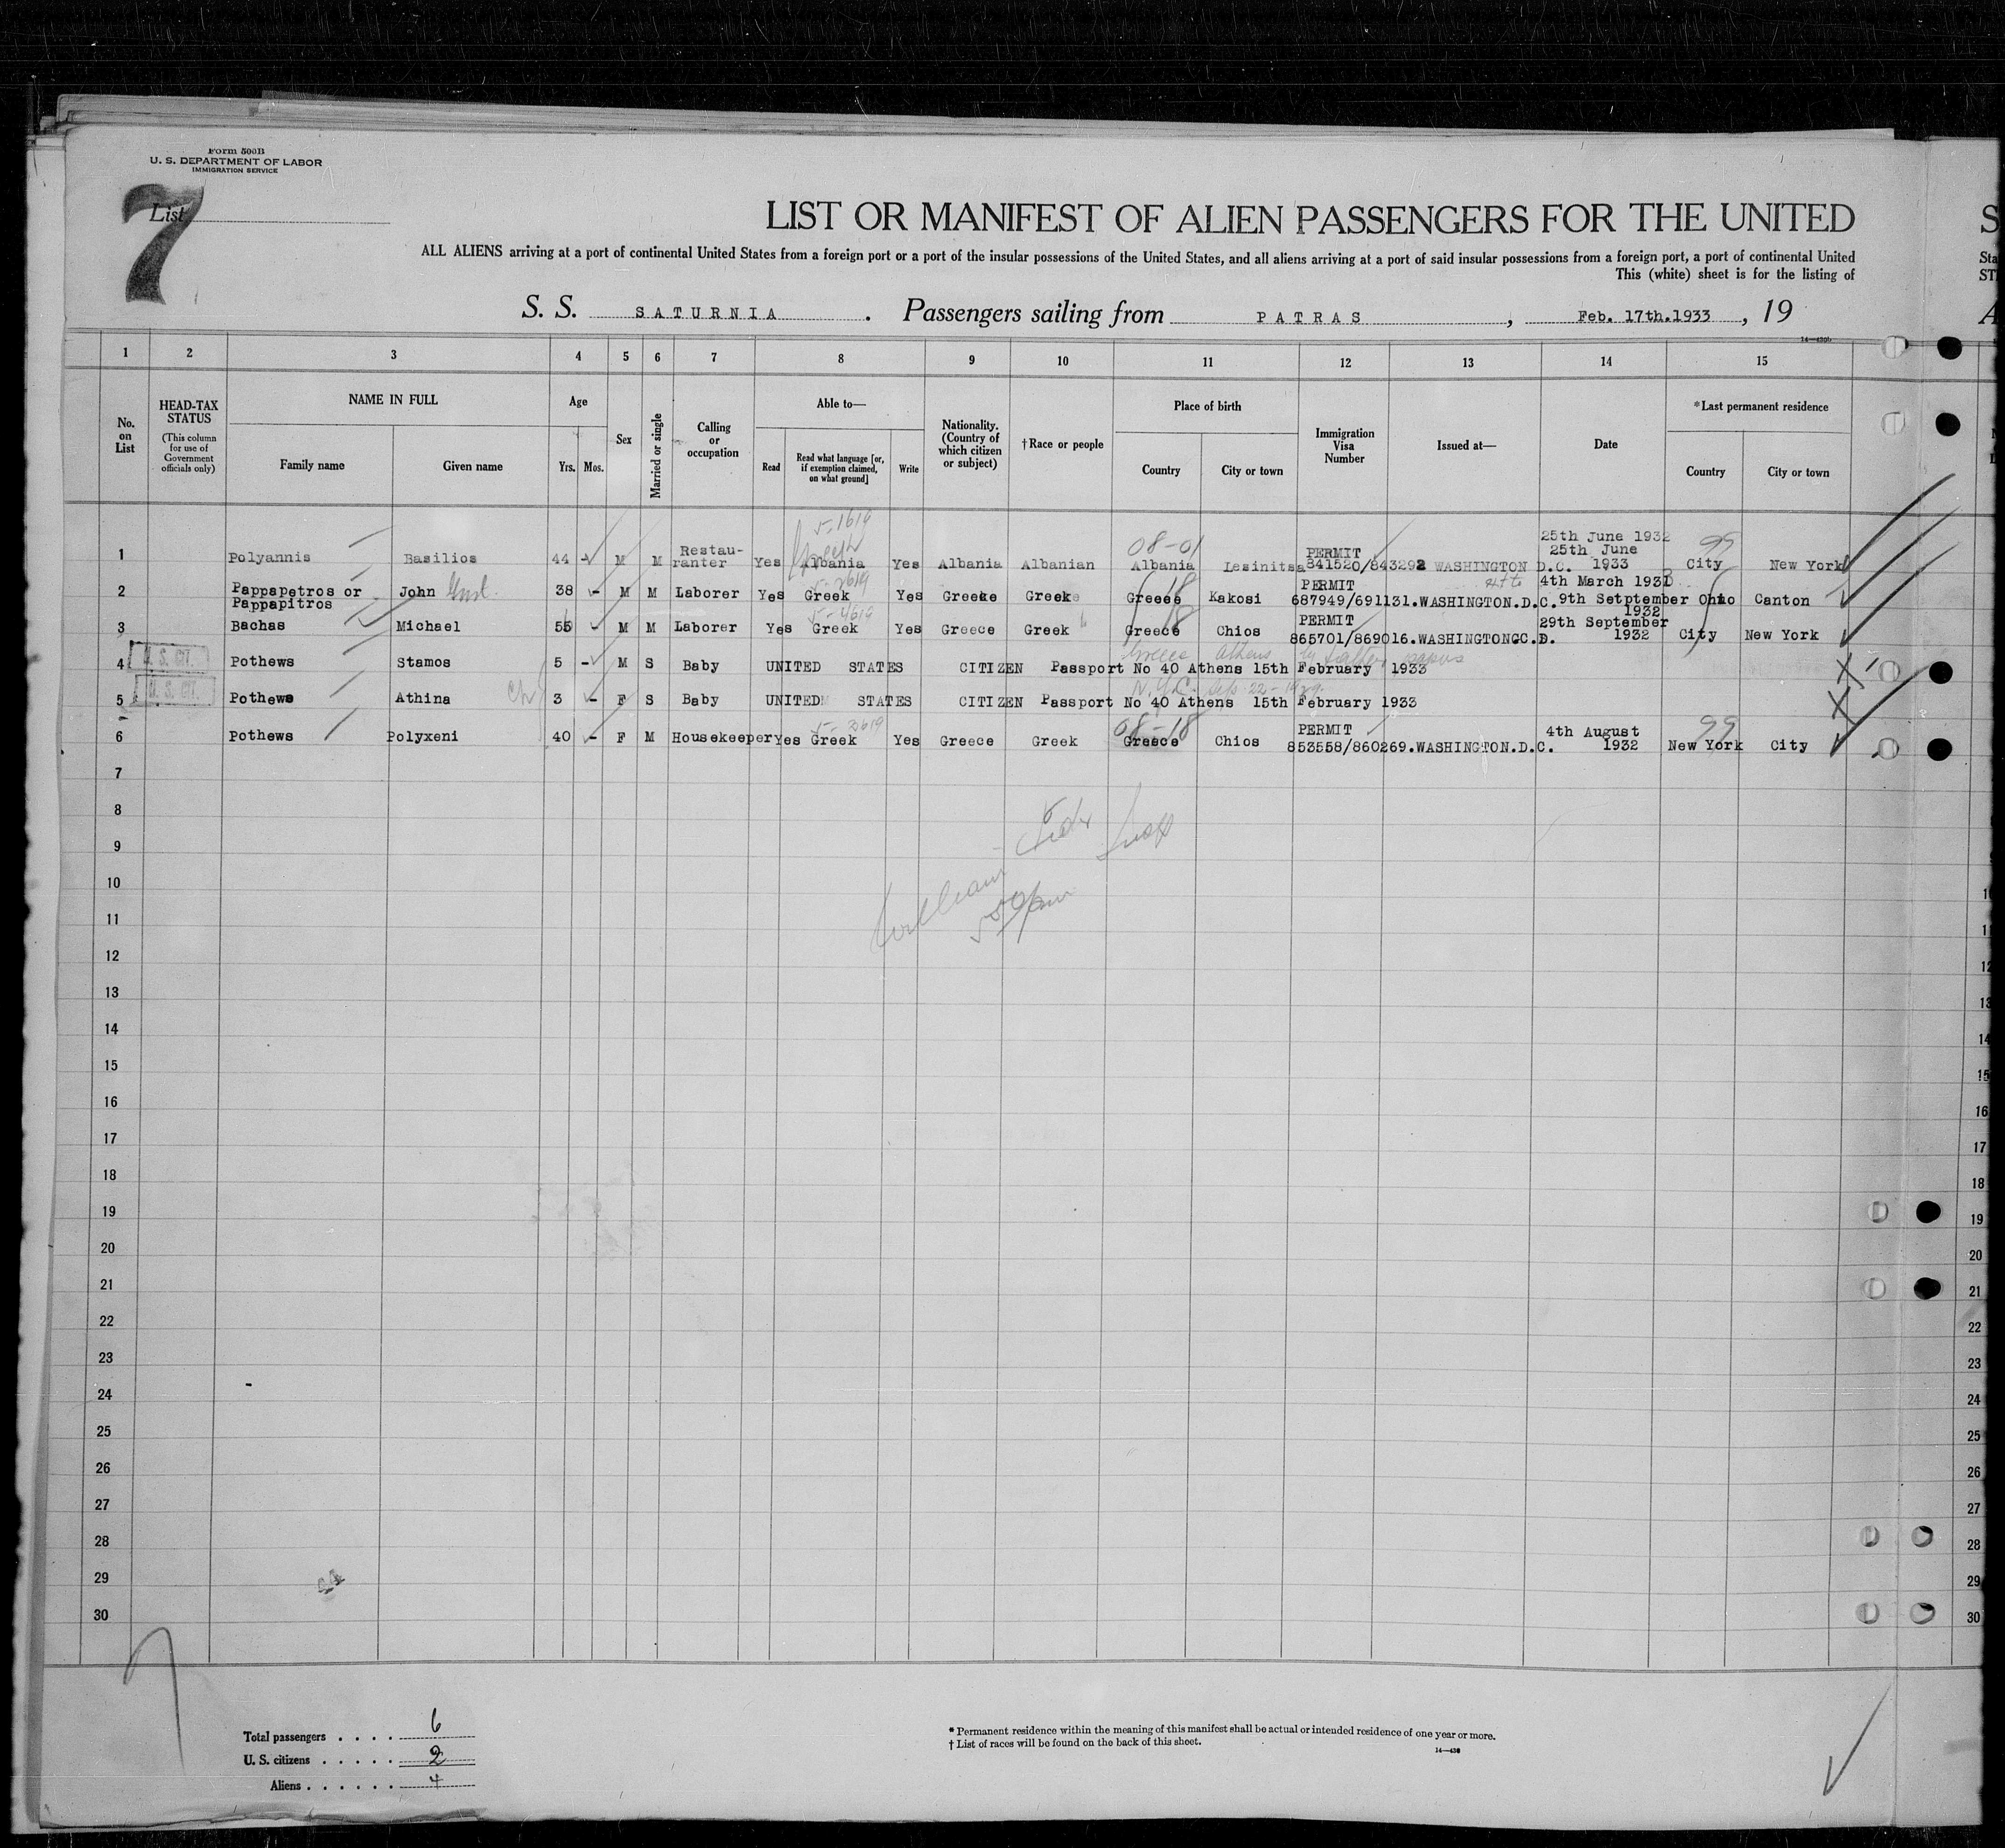 Form 500B
U. S. DEPARTMENT OF LABOR
IMMIGRATION SERVICE
List
7
LIST OR MANIFEST OF ALIEN PASSENGERS FOR THE UNITED
S
ALL ALIENS arriving at a port of continental United States from a foreign port or a port of the insular possessions of the United States, and all aliens arriving at a port of said insular possessions from a foreign port, a port of continental United
This (white) sheet is for the listing of
S. S. SATURNIA. Passengers sailing from PATRAS, Feb. 17th.1933, 19
1 2 3 4 5 6 7 8 9 10 11 12 13 14 15
No. on List
HEAD-TAX STATUS (This column for use of Government officials only)
NAME IN FULL
Family name
Given name
Age
Yrs. Mos.
Sex
Married or single
Calling or occupation
Able to—
Read
Read what language [or, if exemption claimed, on what ground]
Write
Nationality. (Country of which citizen or subject)
†Race or people
Place of birth
Country
City or town
Immigration Visa Number
Issued at—
Date
*Last permanent residence
Country
City or town
1 Polyannis Basilios 44 - M M Restau-ranter Yes Albania Yes Albania Albanian 08-01 Albania Lesinitsa PERMIT 841520/843292 WASHINGTON D.C. 25th June 1932 25th June 1933 99 City New York
2 Pappapetros or Pappapitros John 38 - M M Laborer Yes Greek Yes Greece Greek Greece Kakosi PERMIT 687949/691131.WASHINGTON.D.C. 4th March 193 9th Setptember 1932 Ohio Canton
3 Bachas Michael 55 - M M Laborer Yes Greek Yes Greece Greek Greece Chios PERMIT 865701/869016.WASHINGTONGC.D. 29th September 1932 City New York
4 U. S. CIT. Pothews Stamos 5 - M S Baby UNITED STATES CITIZEN Passport No 40 Athens 15th February 1933
Greece Athens
5 U. S. CIT. Pothews Athina 3 - F S Baby UNITED STATES CITIZEN Passport No 40 Athens 15th February 1933
N.Y.C.
6 Pothews Polyxeni 40 - F M Housekeeper Yes Greek Yes Greece Greek 08-18 Greece Chios PERMIT 853558/860269.WASHINGTON.D.C. 4th August 1932 99 New York City
7
8
9
10
11
12
13
14
15
16
17
18
19
20
21
22
23
24
25
26
27
28
29
30
Total passengers . . . . 6
U. S. citizens . . . . . 2
Aliens . . . . . . 4
* Permanent residence within the meaning of this manifest shall be actual or intended residence of one year or more.
† List of races will be found on the back of this sheet.
14—430